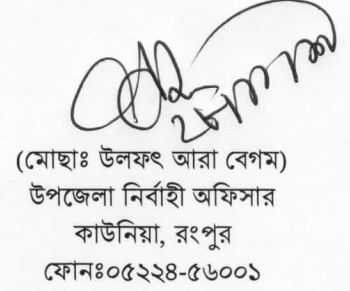 (মোছাঃ উলফৎ আরা বেগম)
উপজেলা নির্বাহী অফিসার
কাউনিয়া, রংপুর
ফোনঃ০৫২২৪-৫৬০০১